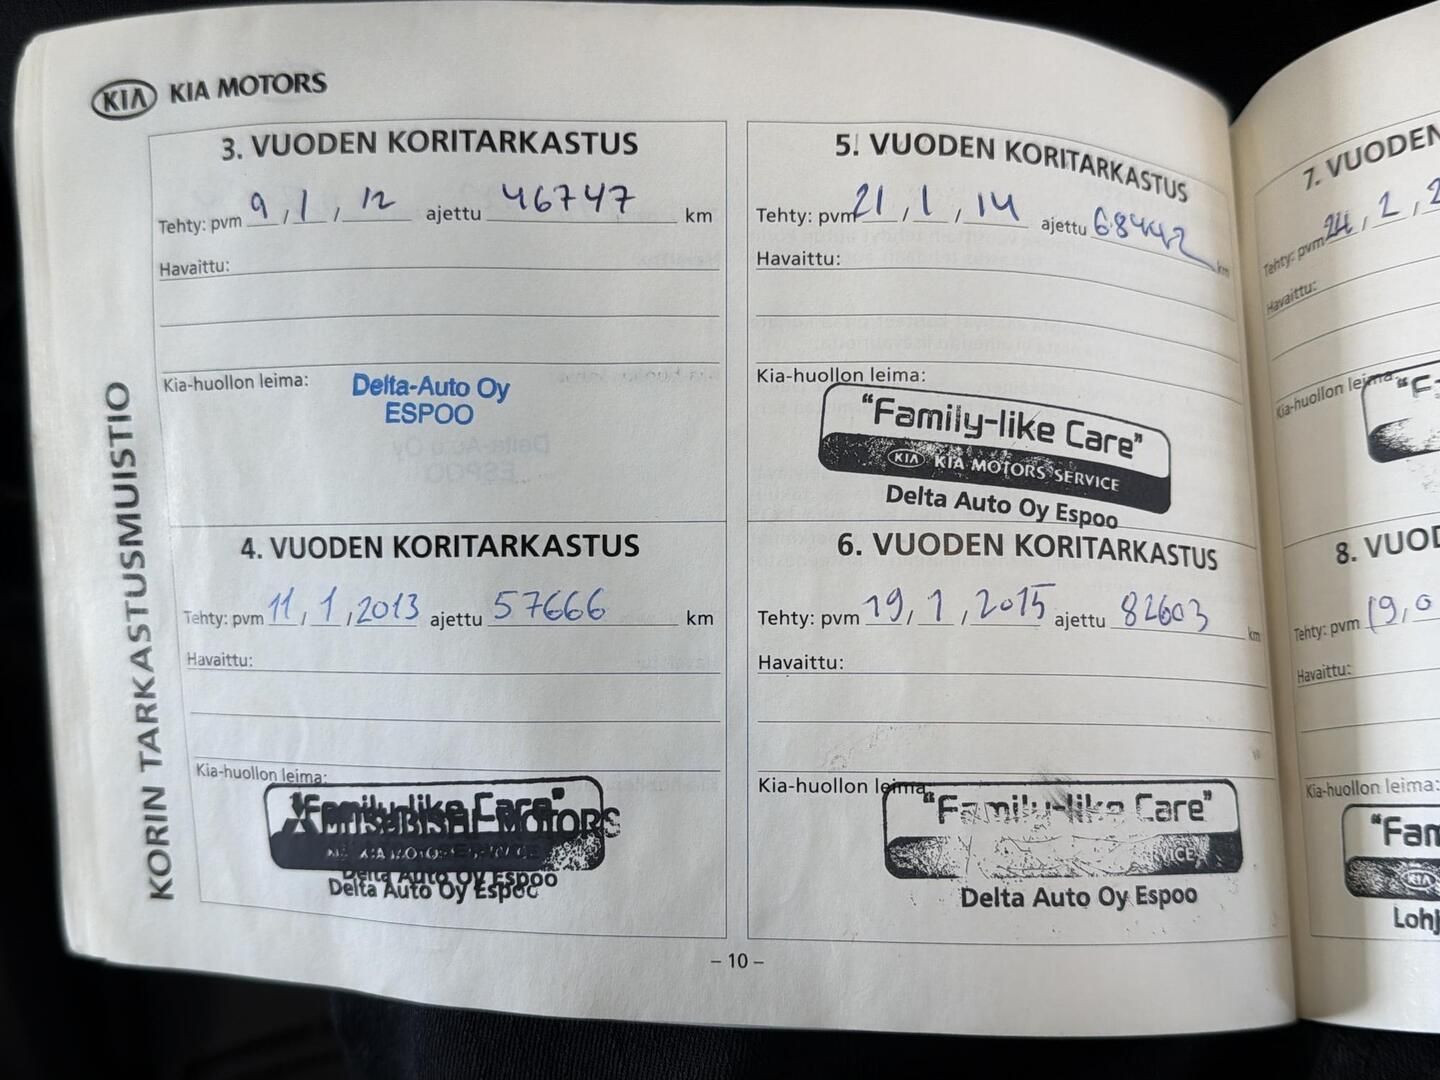 KIA KIA MOTORS
KORIN TARKASTUSMUISTIO
3. VUODEN KORITARKASTUS
Tehty: pvm 9 , 1 , 12 ajettu 46747 km
Havaittu:
Kia-huollon leima:
Delta-Auto Oy
ESPOO
4. VUODEN KORITARKASTUS
Tehty: pvm 11 , 1 , 2013 ajettu 57666 km
Havaittu:
Kia-huollon leima:
"Family-like Care"
MITSUBISHI MOTORS
Delta Auto Oy Espoo
Delta Auto Oy Espoo
5. VUODEN KORITARKASTUS
Tehty: pvm 21 , 1 , 14 ajettu 68442 km
Havaittu:
Kia-huollon leima:
"Family-like Care"
KIA KIA MOTORS SERVICE
Delta Auto Oy Espoo
6. VUODEN KORITARKASTUS
Tehty: pvm 19 , 1 , 2015 ajettu 82603 km
Havaittu:
Kia-huollon leima:
"Family-like Care"
Delta Auto Oy Espoo
– 10 –
7. VUODEN
Tehty: pvm 24 , 2 , 2
Havaittu:
Kia-huollon leima:
8. VUOD
Tehty: pvm 19, 0
Havaittu:
Kia-huollon leima:
"Fam
KIA
Lohj